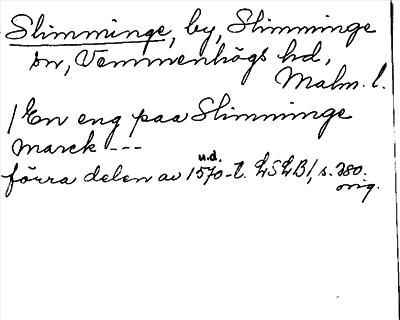 Slimminge, by, Slimminge
sn, Vemmenhögs hd,
Malm. l.
/ En eng paa Slimminge
marck ---
u.d.
förra delen av 1570-t. LSLB/, s. 280.
orig.